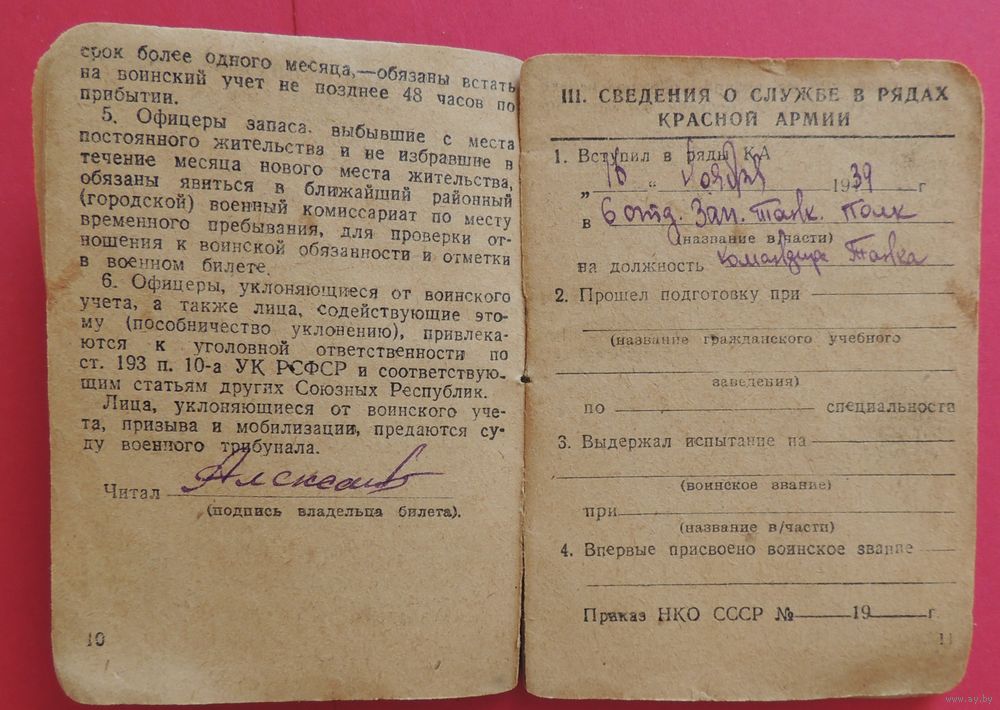 срок более одного месяца,—обязаны встать
на воинский учет не позднее 48 часов по
прибытии.
5. Офицеры запаса, выбывшие с места
постоянного жительства и не избравшие в
течение месяца нового места жительства,
обязаны явиться в ближайший районный
(городской) военный комиссариат по месту
временного пребывания, для проверки от-
ношения к воинской обязанности и отметки
в военном билете.
6. Офицеры, уклоняющиеся от воинского
учета, а также лица, содействующие это-
му (пособничество уклонению), привлека-
ются к уголовной ответственности по
ст. 193 п. 10-а УК РСФСР и соответствую-
щим статьям других Союзных Республик.
Лица, уклоняющиеся от воинского уче-
та, призыва и мобилизации, предаются су-
ду военного трибунала.
Читал
(подпись владельца билета).
10
III. СВЕДЕНИЯ О СЛУЖБЕ В РЯДАХ
КРАСНОЙ АРМИИ
1. Вступил в ряды КА
„ “ ноября 1939 г
в 6 отд. Зап. Танк. Полк
(название в/части)
на должность командира Танка
2. Прошел подготовку при
(название гражданского учебного
заведения)
по специальности
3. Выдержал испытание на
(воинское звание)
при
(название в/части)
4. Впервые присвоено воинское звание
Приказ НКО СССР № 19 г.
11
www.ay.by